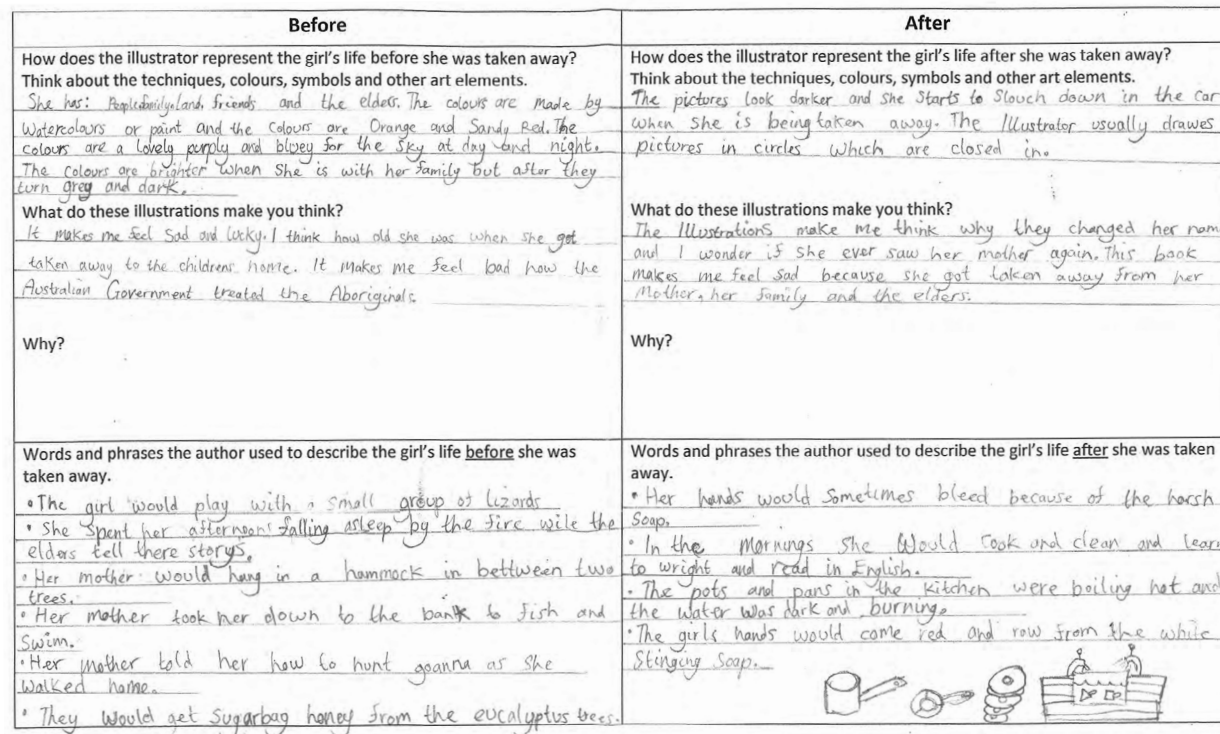 Before
How does the illustrator represent the girl's life before she was taken away?
Think about the techniques, colours, symbols and other art elements.
She has: People, family, land, friends and the elders. The colours are made by
Watercolours or paint and the colours are Orange and Sandy Red. The
colours are a lovely purply and bluey for the sky at day and night.
The colours are brighter when she is with her family but after they
turn grey and dark.
What do these illustrations make you think?
It makes me feel sad and lucky. I think how old she was when she got
taken away to the childrens home. It makes me feel bad how the
Australian Government treated the Aboriginals.
Why?
Words and phrases the author used to describe the girl's life before she was
taken away.
• The girl would play with a small group of lizards
• She spent her afternoons falling asleep by the fire wile the
elders tell there storys.
• Her mother would hang in a hammock in bettween two
trees.
• Her mother took her down to the bank to fish and
Swim.
• Her mother told her how to hunt goanna as she
walked home.
• They would get sugarbag honey from the eucalyptus trees.
After
How does the illustrator represent the girl's life after she was taken away?
Think about the techniques, colours, symbols and other art elements.
The pictures look darker and she starts to slouch down in the car
when she is being taken away. The Illustrator usually drawes
pictures in circles which are closed in.
What do these illustrations make you think?
The Illustrations make me think why they changed her nam
and I wonder if she ever saw her mother again. This book
makes me feel sad because she got taken away from her
Mother, her family and the elders.
Why?
Words and phrases the author used to describe the girl's life after she was taken
away.
• Her hands would sometimes bleed because of the harsh
Soap.
• In the mornings she would cook and clean and learn
to wright and read in English.
• The pots and pans in the kitchen were boiling hot and
the water was dark and burning.
• The girls hands would come red and row from the white
Stinging Soap.